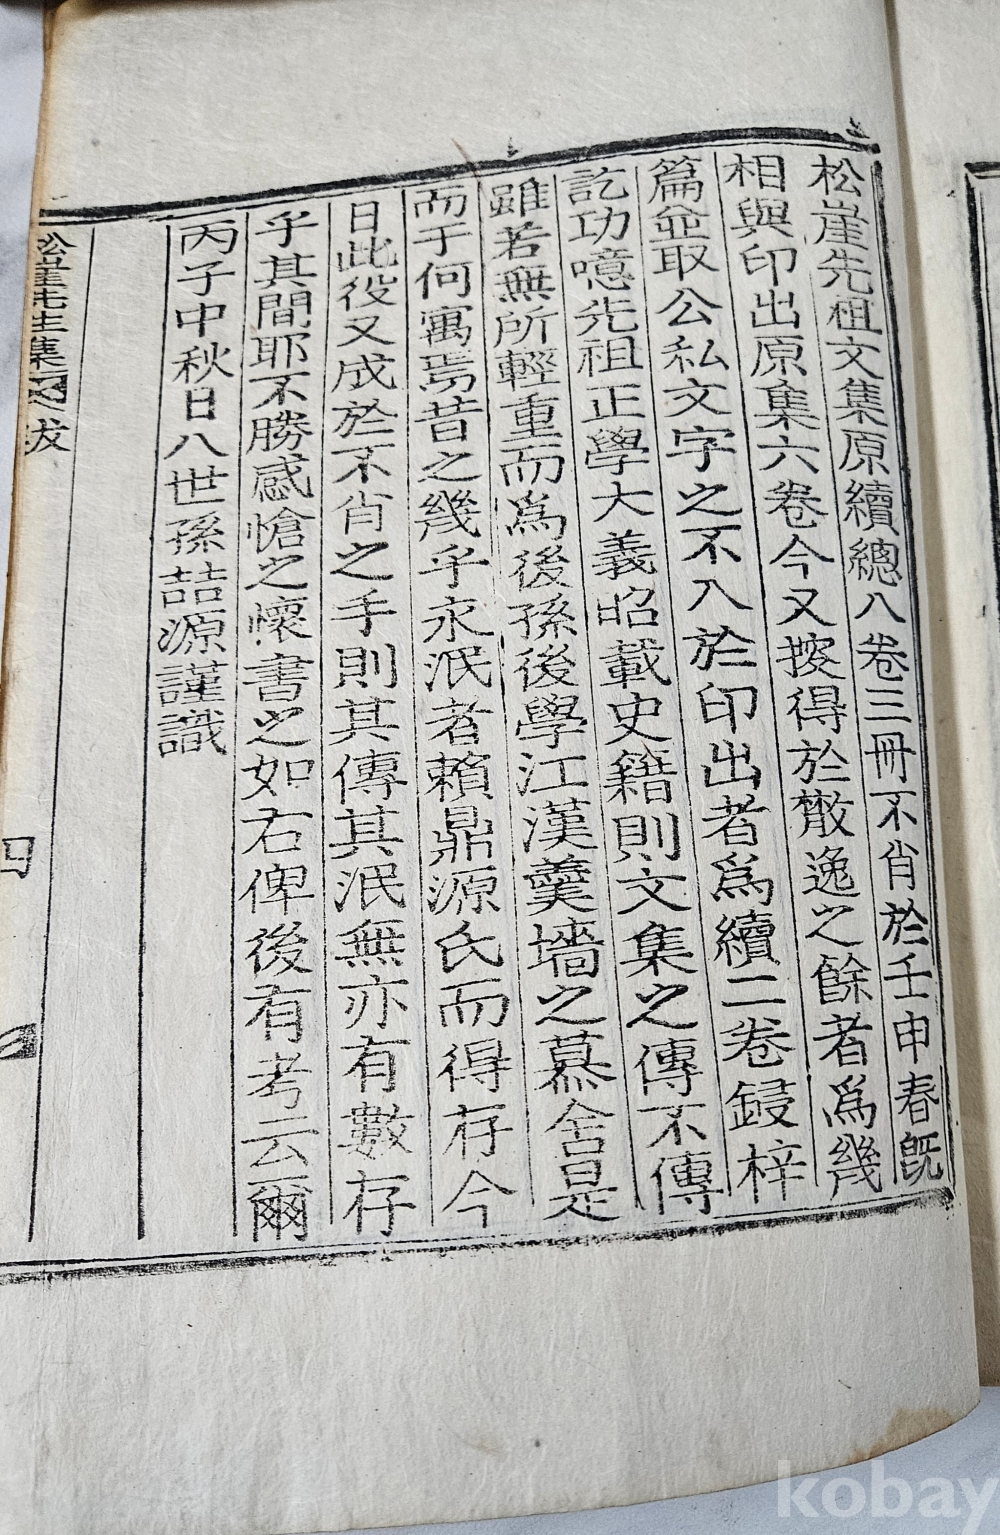 松崖先祖文集原續總八卷三冊不肖於壬申春旣
相與印出原集六卷今又搜得於散逸之餘者爲幾
篇並取公私文字之不入於印出者爲續二卷鋟梓
訖功噫先祖正學大義昭載史籍則文集之傳不傳
雖若無所輕重而爲後孫後學江漢羹墻之慕舍是
而于何寓焉昔之幾乎永泯者賴鼎源氏而得存今
日此役又成於不肖之手則其傳其泯無亦有數存
乎其間耶不勝感愴之懷書之如右俾後有考云爾
丙子中秋日八世孫喆源謹識
松崖先生集 跋
四
kobay